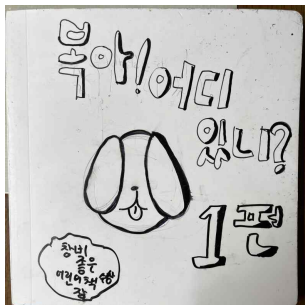 복아! 어디
있니?
1편
창비
좋은
어린이책 수상
작